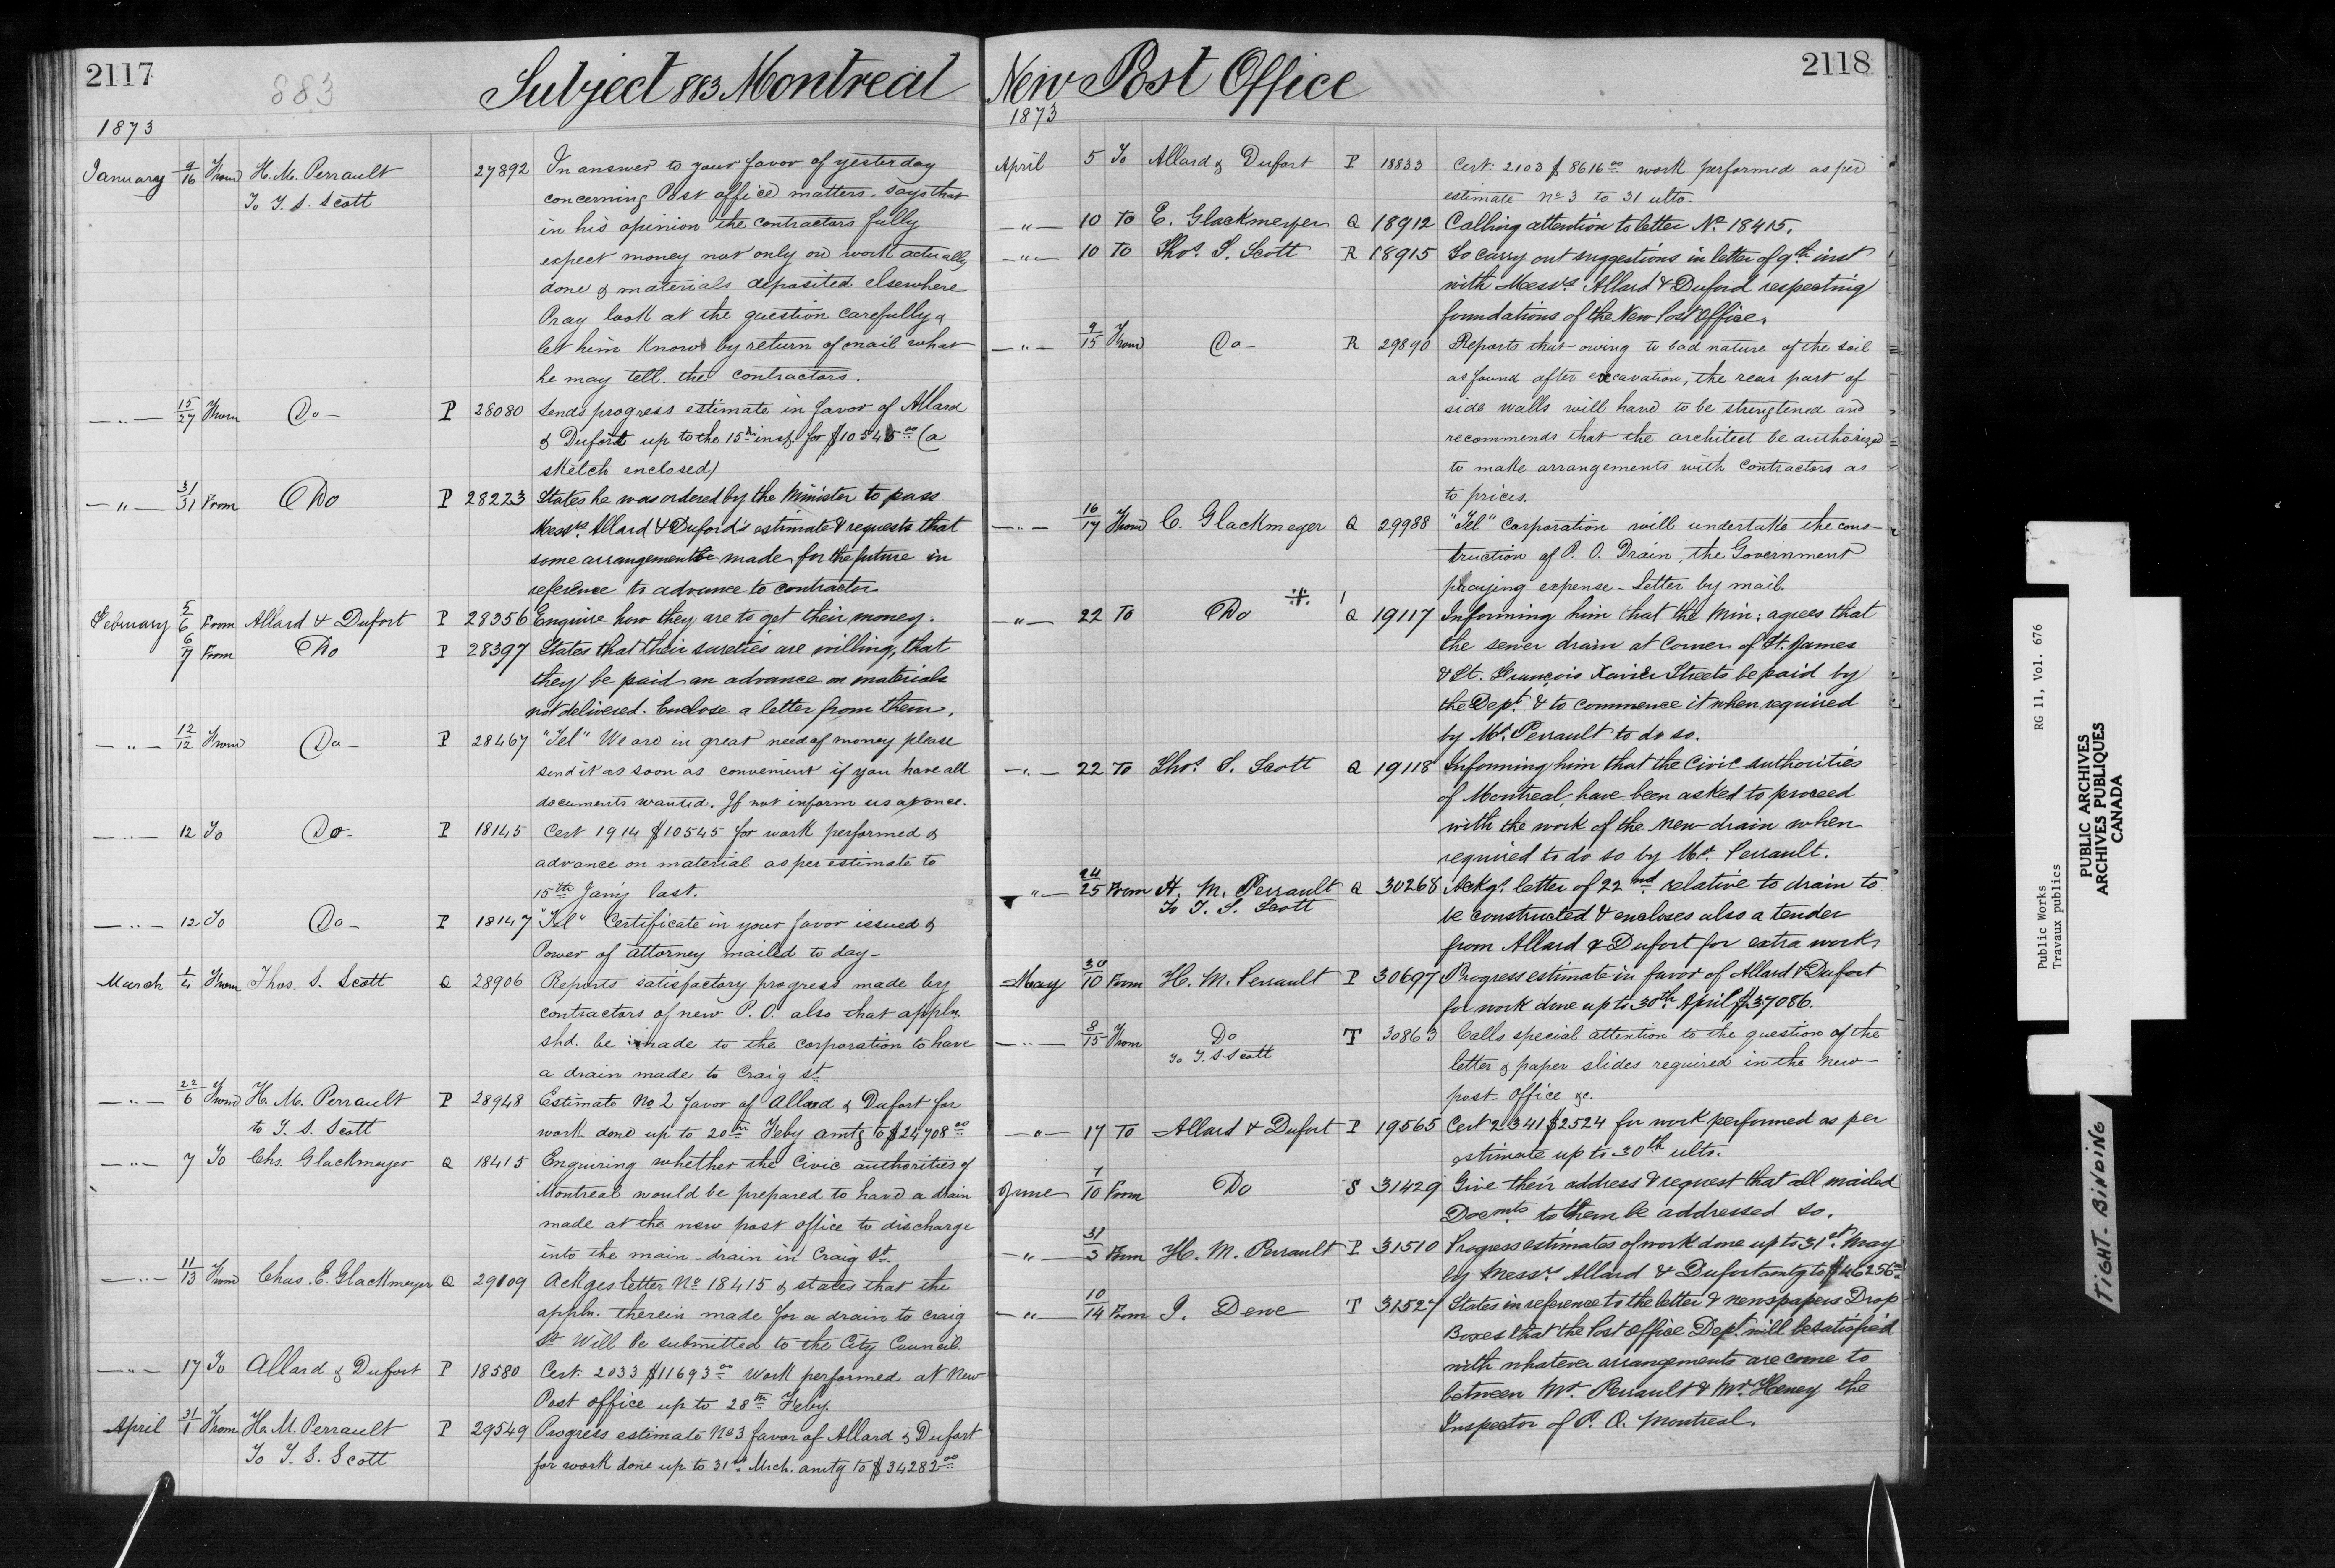 2117
883
Subject 883 Montreal
1873
January 9/16 From H. M. Perrault 27892 In answer to your favor of yesterday
To T. S. Scott concerning Post office matters, says that
in his opinion the contractors fully
expect money not only on work actually
done & materials deposited elsewhere
Pray look at the question carefully &
let him know by return of mail what
he may tell the contractors.
—"— 15/27 From Do — P 28080 Sends progress estimate in favor of Allard
& Dufort up to the 15th inst. for $10545 00 (a
sketch enclosed)
—"— 31/31 From Do P 28223 States he was ordered by the Minister to pass
Messrs. Allard & Duford's estimate & requests that
some arrangement be made for the future in
reference to advance to contractor
February 5/6 From Allard & Dufort P 28356 Enquire how they are to get their money.
6/7 From Do P 28397 States that their sureties are willing, that
they be paid an advance on materials
not delivered. Enclose a letter from them.
—"— 12/12 From Do — P 28467 "Tel" We are in great need of money please
send it as soon as convenient if you have all
documents wanted. If not inform us at once.
—"— 12 To Do — P 18145 Cert 1914 $10545 for work performed &
advance on material as per estimate to
15th Jany last.
—"— 12 To Do — P 18147 "Tel" Certificate in your favor issued &
Power of attorney mailed to day —
March 1/4 From Thos. S. Scott Q 28906 Reports satisfactory progress made by
contractors of new P. O. also that appln.
shd. be made to the corporation to have
a drain made to Craig St.
—"— 22/6 From H. M. Perrault P 28948 Estimate No 2 favor of Allard & Dufort for
to T. S. Scott work done up to 20th Feby amtg to $24708 00
—"— 7 To Chs. Glackmeyer Q 18415 Enquiring whether the Civic authorities of
Montreal would be prepared to have a drain
made at the new post office to discharge
into the main drain in Craig St.
—"— 11/13 From Chas. E. Glackmeyer Q 29109 Ackges letter No 18415 & states that the
appln. therein made for a drain to Craig
St Will be submitted to the City Council
—"— 17 To Allard & Dufort P 18580 Cert. 2033 $11693 00 Work performed at New
Post office up to 28th Feby.
April 31/1 From H. M. Perrault P 29549 Progress estimate No 3 favor of Allard & Dufort
To T. S. Scott for work done up to 31st Mrch. amtg to $34282 00
2118
New Post Office
1873
April 5 To Allard & Dufort P 18833 Cert: 2103 $8616 00 work performed as per
estimate No 3 to 31 ulto.
—"— 10 To E. Glackmeyer Q 18912 Calling attention to letter No 18415.
—"— 10 To Thos. S. Scott R 18915 To carry out suggestions in letter of 9th inst
with Messrs Allard & Duford respecting
foundations of the New Post Office.
—"— 9/15 From Do — R 29890 Reports that owing to bad nature of the soil
as found after excavation, the rear part of
side walls will have to be strengtened and
recommends that the architect be authorized
to make arrangements with contractors as
to prices.
—"— 16/17 From C. Glackmeyer Q 29988 "Tel" Corporation will undertake the cons-
truction of P. O. Drain, the Government
paying expense - Letter by mail.
—"— 22 To Do Q 19117 Informing him that the Min: agrees that
the sewer drain at Corner of St. James
& St. François Xavier Streets be paid by
the Dept. & to commence it when required
by Mr. Perrault to do so.
—"— 22 To Thos. S. Scott Q 19118 Informing him that the Civic authorities
of Montreal, have been asked to proceed
with the work of the new drain when
required to do so by Mr. Perrault.
—"— 24/25 From H. M. Perrault Q 30268 Ackgs. letter of 22nd relative to drain to
To T. S. Scott be constructed & encloses also a tender
from Allard & Dufort for extra work.
May 30/10 From H. M. Perrault P 30697 Progress estimate in favor of Allard & Dufort
for work done up to 30th April $37086.
—"— 8/15 From Do T 30863 Calls special attention to the question of the
To T. S. Scott letter & paper slides required in the new
post office &c.
—"— 17 To Allard & Dufort P 19565 Cert 2341 $2524 for work performed as per
estimate up to 30th ulto.
June 7/10 From Do S 31429 Give their address & request that all mailed
Docmts to them be addressed so.
—"— 31/3 From H. M. Perrault P 31510 Progress estimates of work done up to 31st May
by Messrs. Allard & Dufort amtg to $46256 00
—"— 10/14 From J. Dewe T 31527 States in reference to the letter & newspapers Drop
Boxes that the Post Office Dept. will be satisfied
with whatever arrangements are come to
between Mr. Perrault & Mr. Heney the
Inspector of P. O. Montreal.
Public Works RG 11, Vol. 676
Travaux publics
PUBLIC ARCHIVES
ARCHIVES PUBLIQUES
CANADA
TIGHT-BINDING